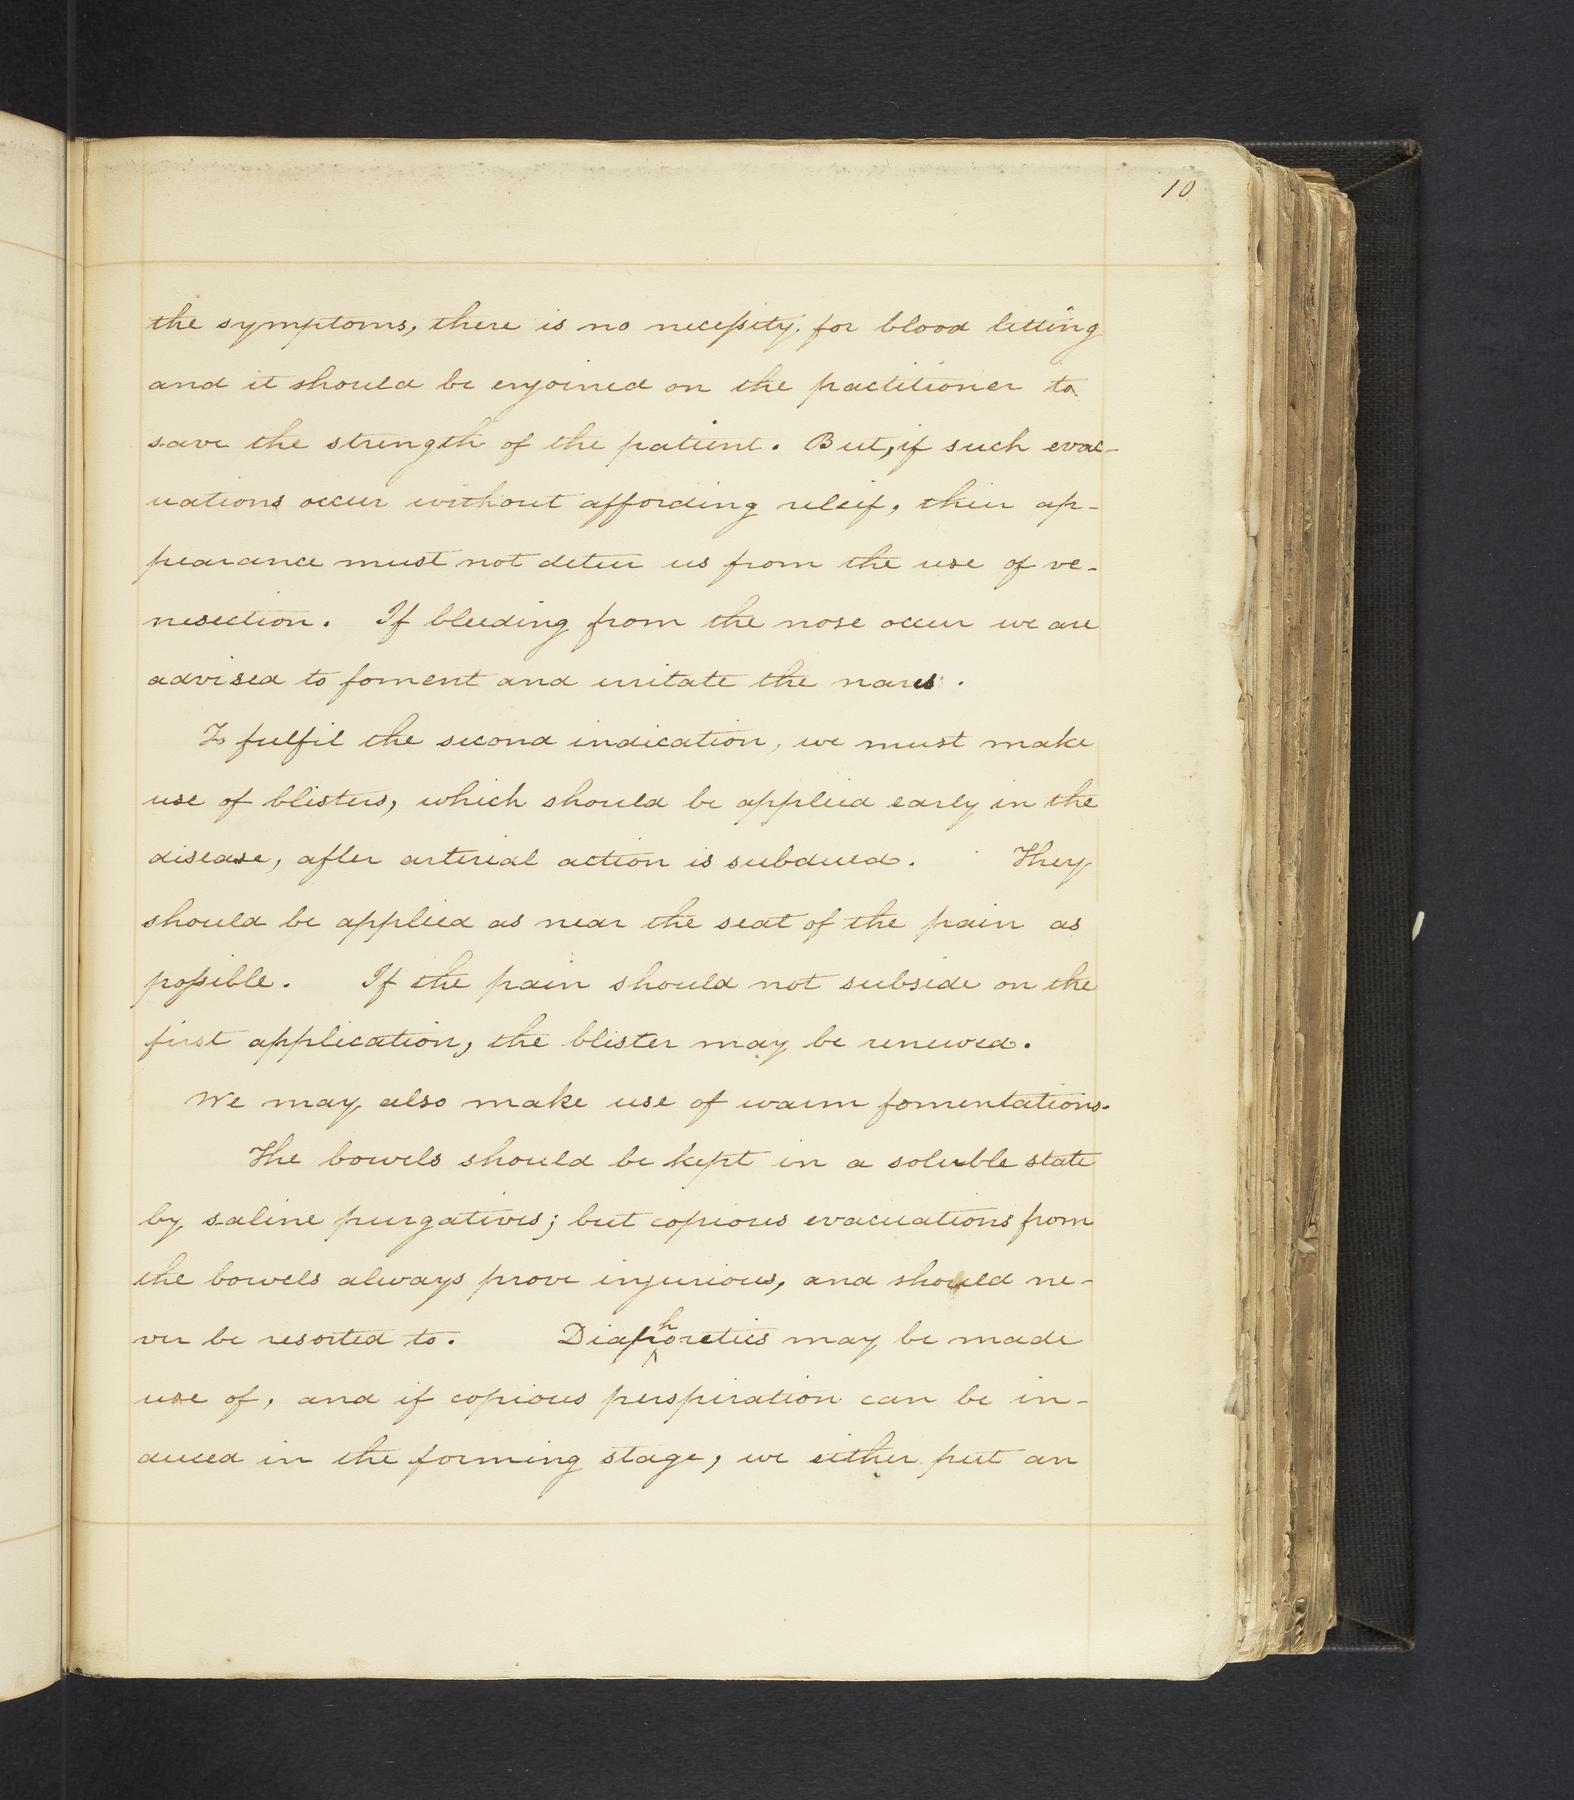 10
the symptoms, there is no necessity for blood letting
and it should be enjoined on the practitioner to
save the strength of the patient. But, if such evac-
uations occur without affording releif, their ap-
pearance must not deter us from the use of ve-
nesection. If bleeding from the nose occur we are
advised to foment and irritate the nares.
To fulfil the second indication, we must make
use of blisters, which should be applied early in the
disease, after arterial action is subdued. They
should be applied as near the seat of the pain as
possible. If the pain should not subside on the
first application, the blister may be renewed.
We may also make use of warm fomentations.
The bowels should be kept in a soluble state
by saline purgatives; but copious evacuations from
the bowels always prove injurious, and should ne-
ver be resorted to. Diaphoretics may be made
use of, and if copious perspiration can be in-
duced in the forming stage, we either put an